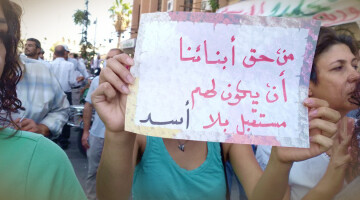 من حق أبنائنا
أن يكون لهم
مستقبل بلا أسد